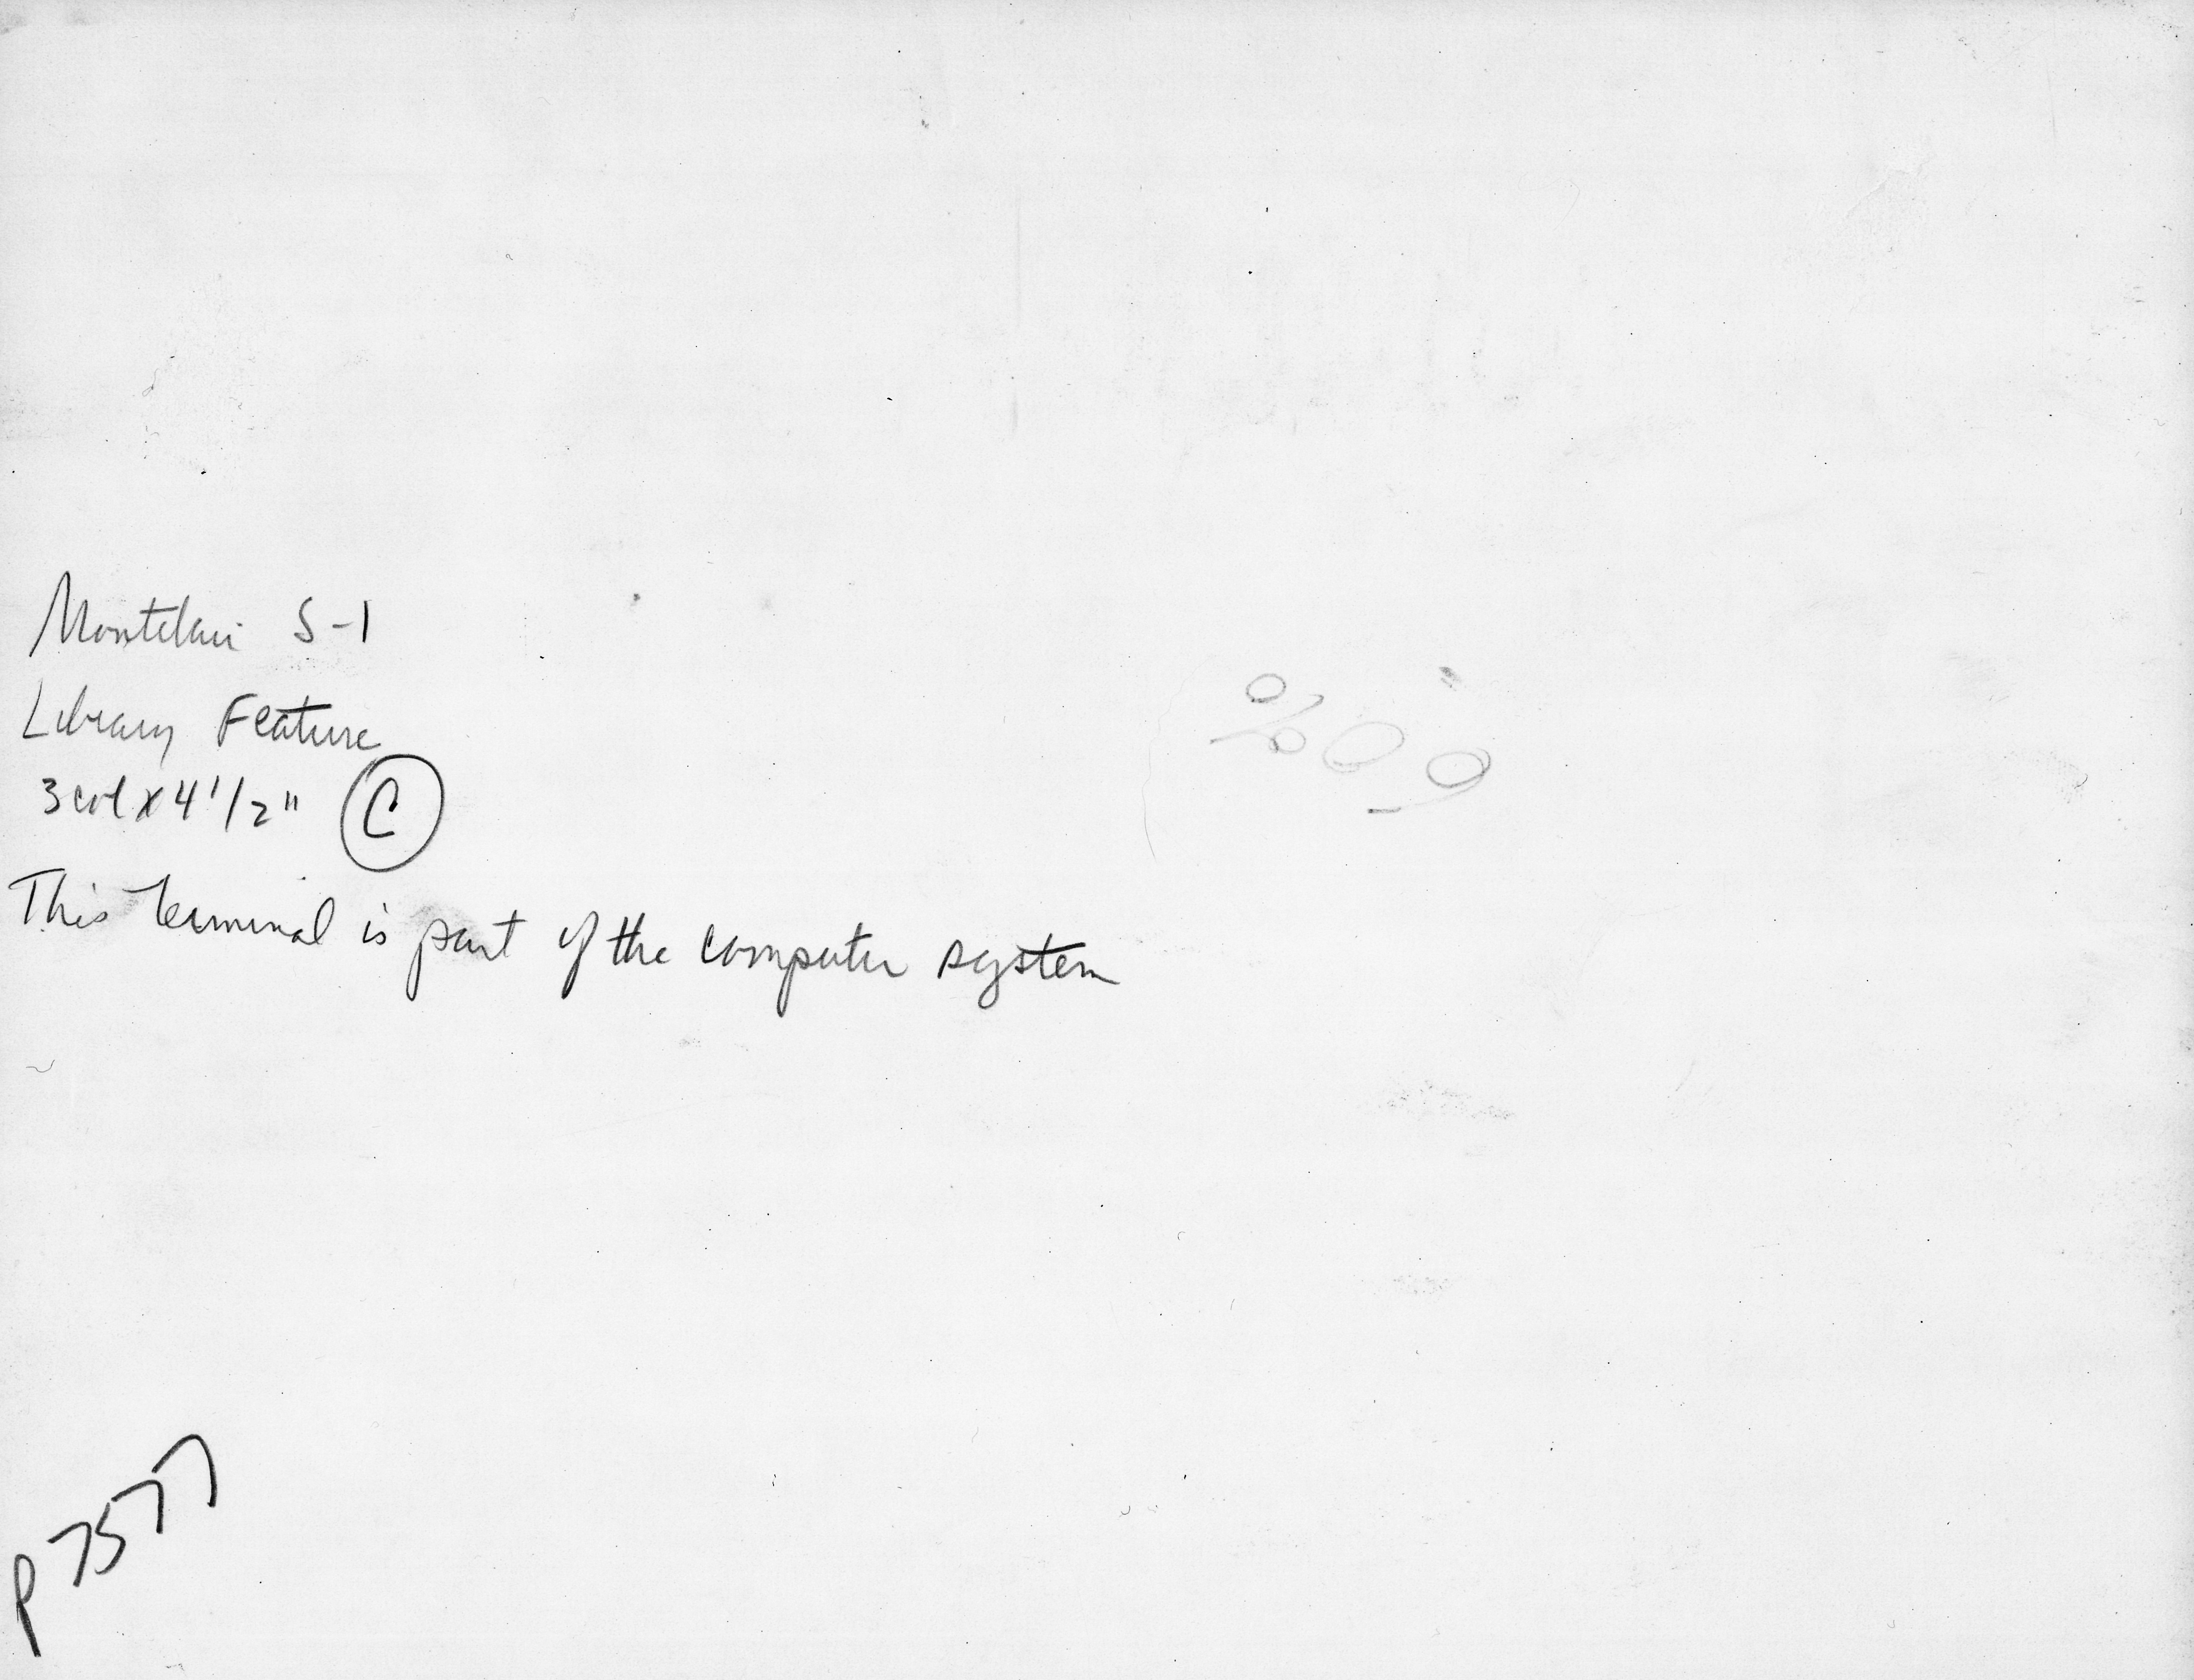 Montclair S-1
Library Feature
3 col x 4 1/2" C
This terminal is part of the computer system
60%
P 7577